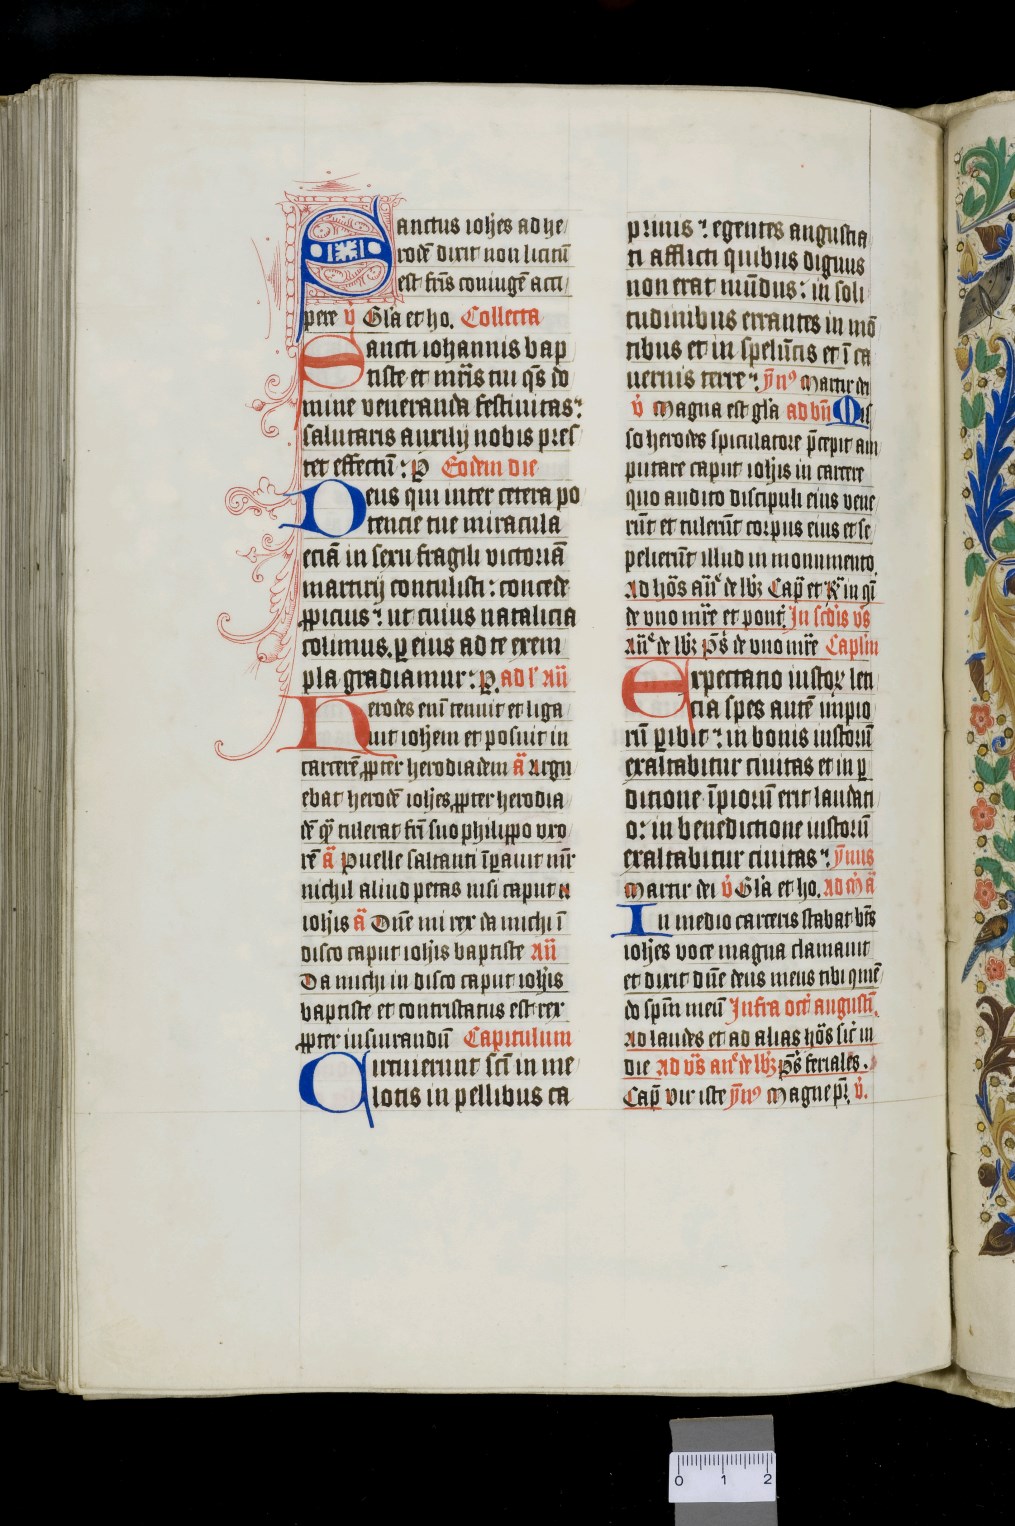 Sanctus ioħes ad he
rodē dixit non licitū
est fr̄is coniugē acci
pere v̇ Gl̄a et ho. Collecta
Sancti iohannis bap
tiste et mr̄is tui qs̄ do
mine veneranda festiuitas:
salutaris auxilij nobis pres
tet effectū: P Eodem die
Deus qui inter cetera po
tencie tue miracula
eciā in sexu fragili victoriā
martirij contulisti: concede
ꝓpicius: ut cuius natalicia
colimus. ꝑ eius ad te exem
pla gradiamur: P. ad l' an̄
Herodes eni tenuit et liga
uit ioħem et posuit in
carcerē ꝓpter herodiadem ā Argu
ebat herodē ioħes ꝓpter herodia
dē qꝫ tulerat fr̄i suo philippo vxo
rē ā Puelle saltanti īꝑauit mr̄
nichil aliud petas nisi caput
ioħis ā Dn̄e mi rex da michi ī
disco caput ioħis baptiste an̄
Da michi in disco caput ioħis
baptiste et contristatus est rex
ꝓpter iusiurandū Capitulum
Circuierunt sct̄i in me
lotis in pellibus ca
prinis: egentes angustia
ti afflicti quibus dignus
non erat mūdus: in soli
tudinibus errantes in mō
tibus et in speluncis et ī ca
uernis terre: ẏn⁹ Martir dei
v̇ Magna est gl̄a ad bn̄ Mis
so herodes spiculatore p̄cepit am
putare caput ioħis in carcere
quo audito discipuli eius vene
rūt et tulerūt corpus eius et se
pelierūt illud in monumento.
Ad hōs an̄e de lbꝫ Cap̄ et R̄ in qi
de vno mr̄e et pont̄. In scd̄is vs̄
an̄e de lbꝫ ps̄ de vno mr̄e Caplm̄
Expectatio iustoꝝ leti
cia spes autē impio
rū ꝑibit: in bonis iustorū
exaltabitur ciuitas et in ꝑ
ditione īpiorū erit laudati
o: in benedictione iustorū
exaltabitur ciuitas: ẏmus
Martir dei v̇ Gl̄a et ho. ad m̄ ā
In medio carceris stabat bt̄s
ioħes voce magna clamauit
et dixit dn̄e deus meus tibi
do sp̄m meū Infra oct̄ augusti.
Ad laudes et ad alias hōs sic̄ in
die ad vs̄ an̄e de lbꝫ ps̄ feriales.
Cap̄ Vir iste ẏn⁹ Magne pr̄. v̇.